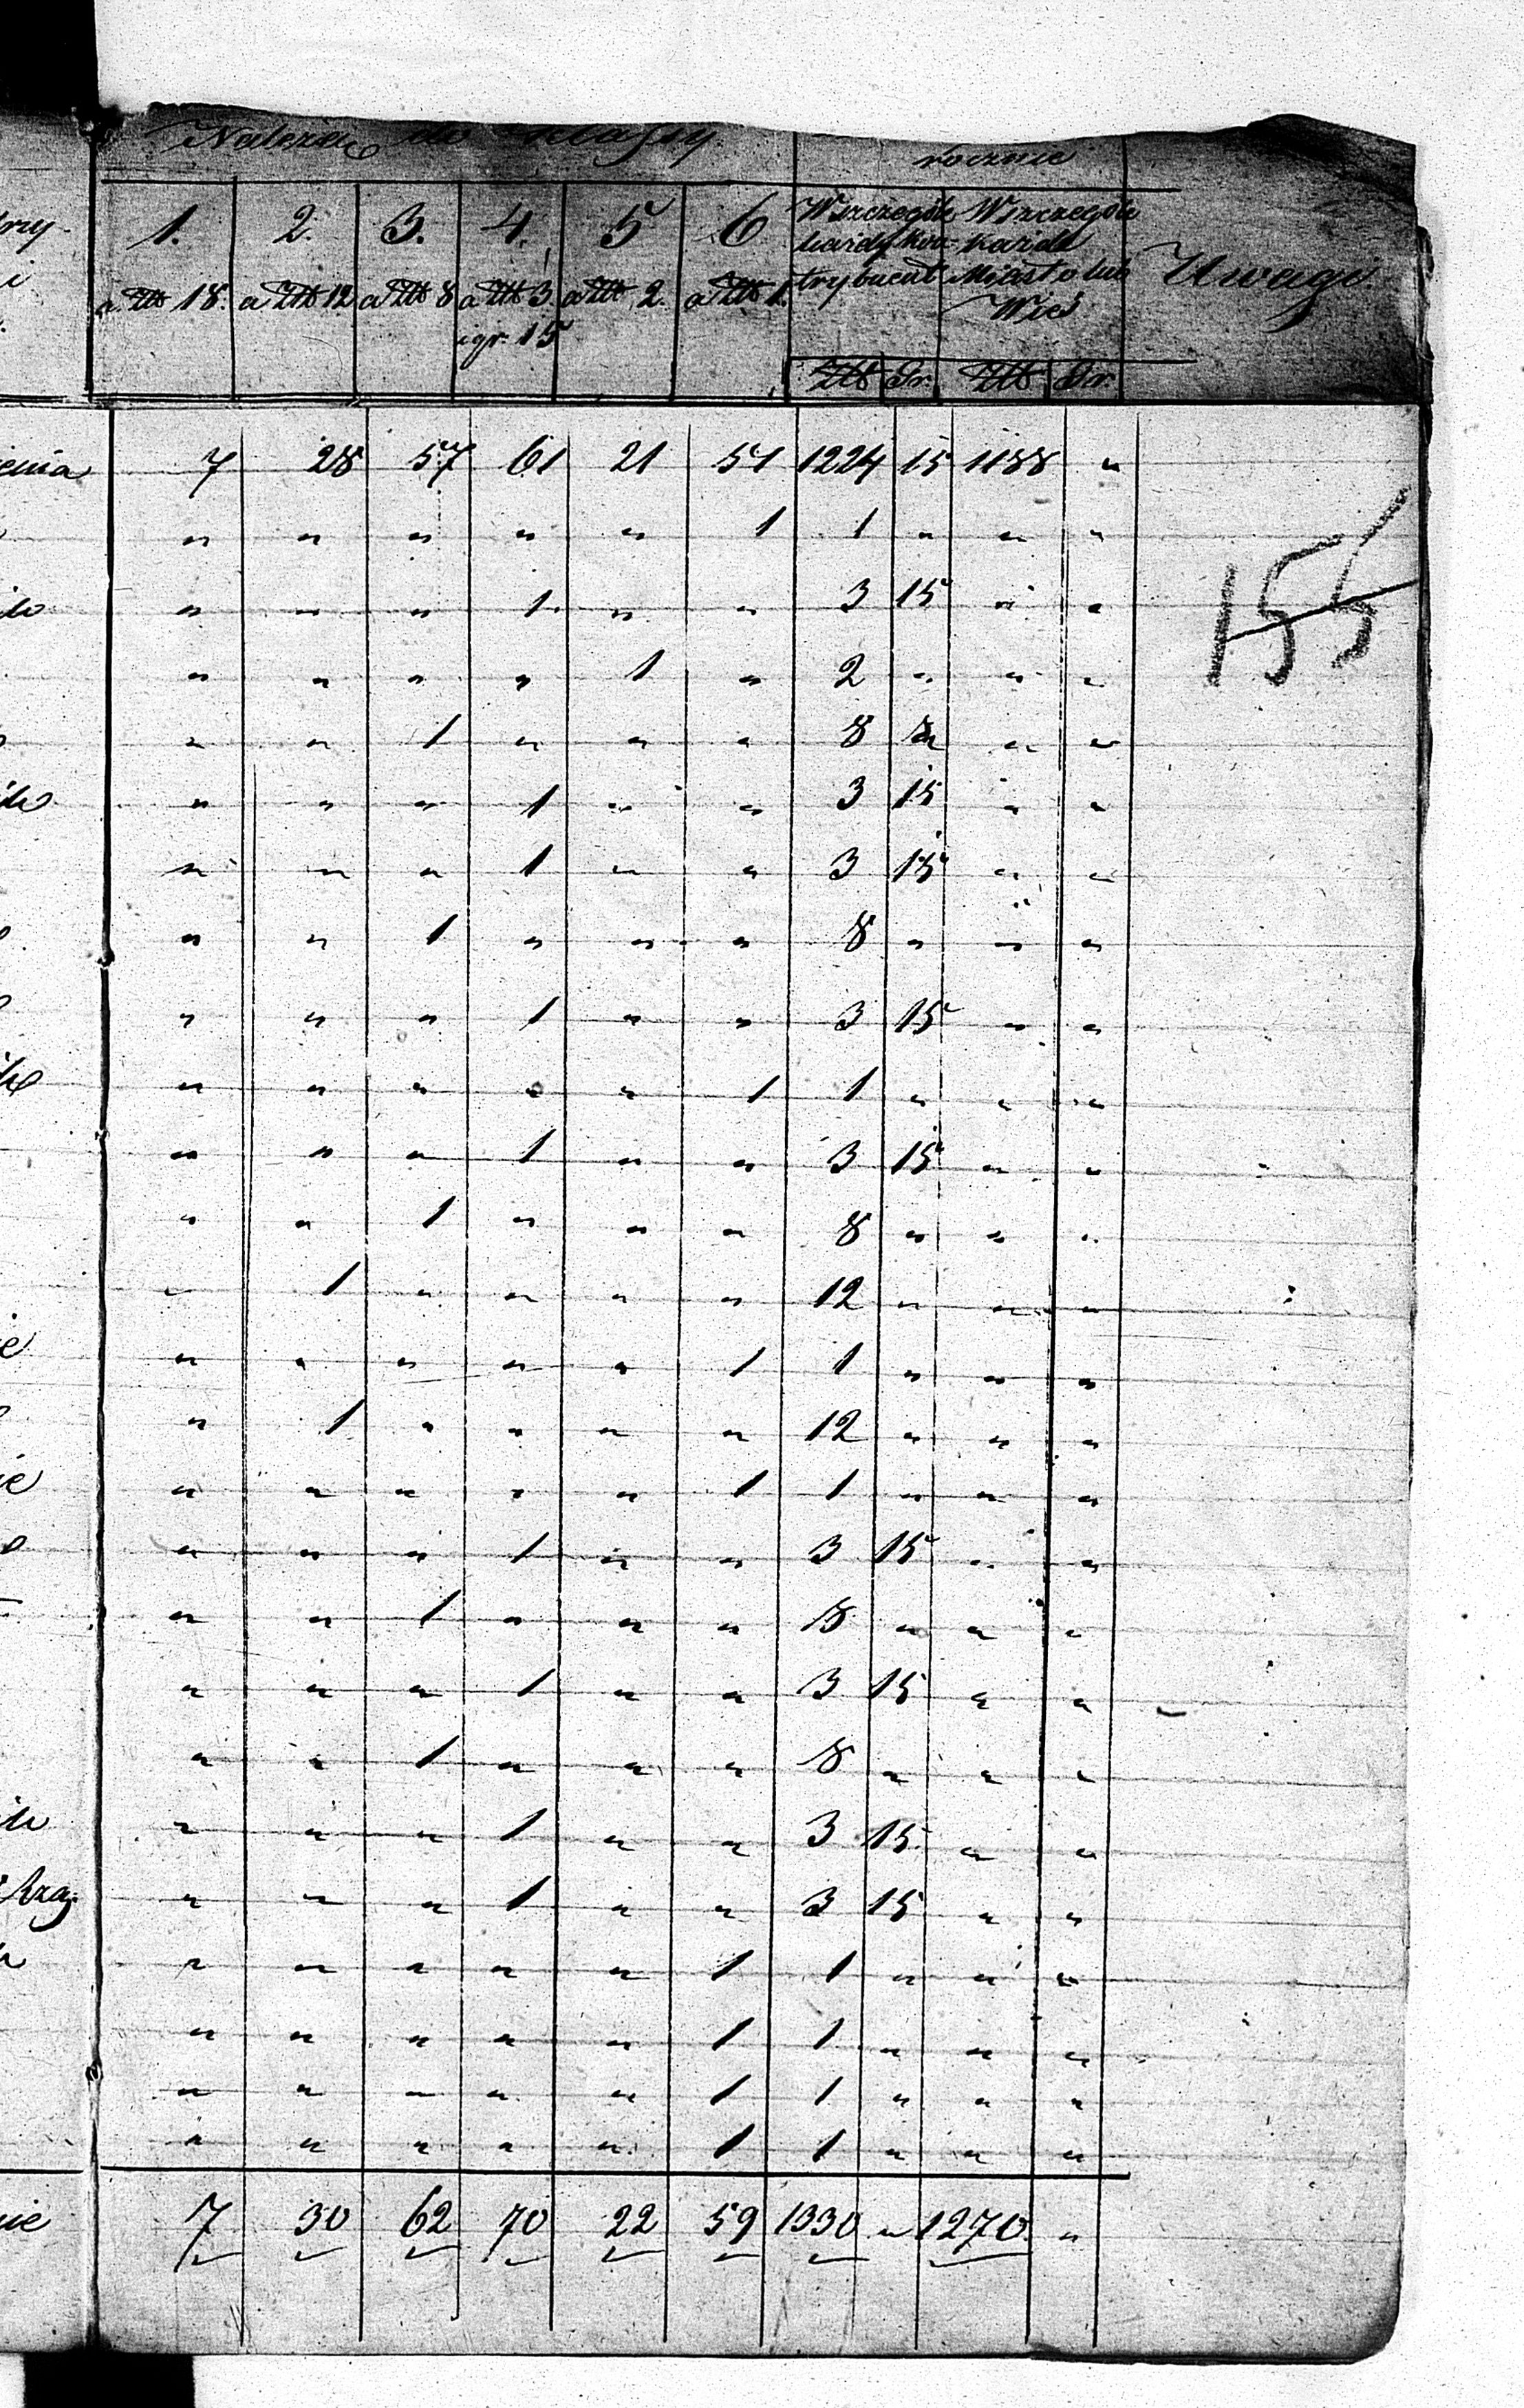 Należą do klassy
rocznie
1. 2. 3. 4. 5 6 Wszczególe Wszczególe
każdy kon- każde
trybuent Miasto lub Uwagi.
a Złt 18. a Złt 12 a Złt 8 a Złt 3 a Złt 2. a Złt 1. Wieś
i gr. 15
Złt Gr. Złt Gr.
7 28 57 61 21 51 1224 15 1188 "
" " " " " 1 1 " " "
" " " 1 " " 3 15 " "
155
" " " " 1 " 2 " " "
" " 1 " " " 8 " " "
" " " 1 " " 3 15 " "
" " " 1 " " 3 15 " "
" " 1 " " " 8 " " "
" " " 1 " " 3 15 " "
" " " " " 1 1 " " "
" " " 1 " " 3 15 " "
" " 1 " " " 8 " " "
" 1 " " " " 12 " " "
" " " " " 1 1 " " "
" 1 " " " " 12 " " "
" " " " " 1 1 " " "
" " " 1 " " 3 15 " "
" " 1 " " " 8 " " "
" " " 1 " " 3 15 " "
" " 1 " " " 8 " " "
" " " 1 " " 3 15 " "
" " " 1 " " 3 15 " "
" " " " " 1 1 " " "
" " " " " 1 1 " " "
" " " " " 1 1 " " "
" " " " " 1 1 " " "
7 30 62 70 22 59 1330 " 1270 "